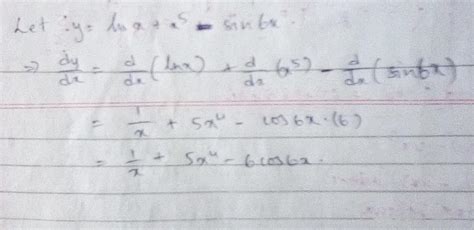 Let :y = ln x + x⁵ - sin 6x.
⇒ dy/dx = d/dx (ln x) + d/dx (x⁵) - d/dx (sin 6x)
= 1/x + 5x⁴ - cos 6x · (6)
= 1/x + 5x⁴ - 6 cos 6x.